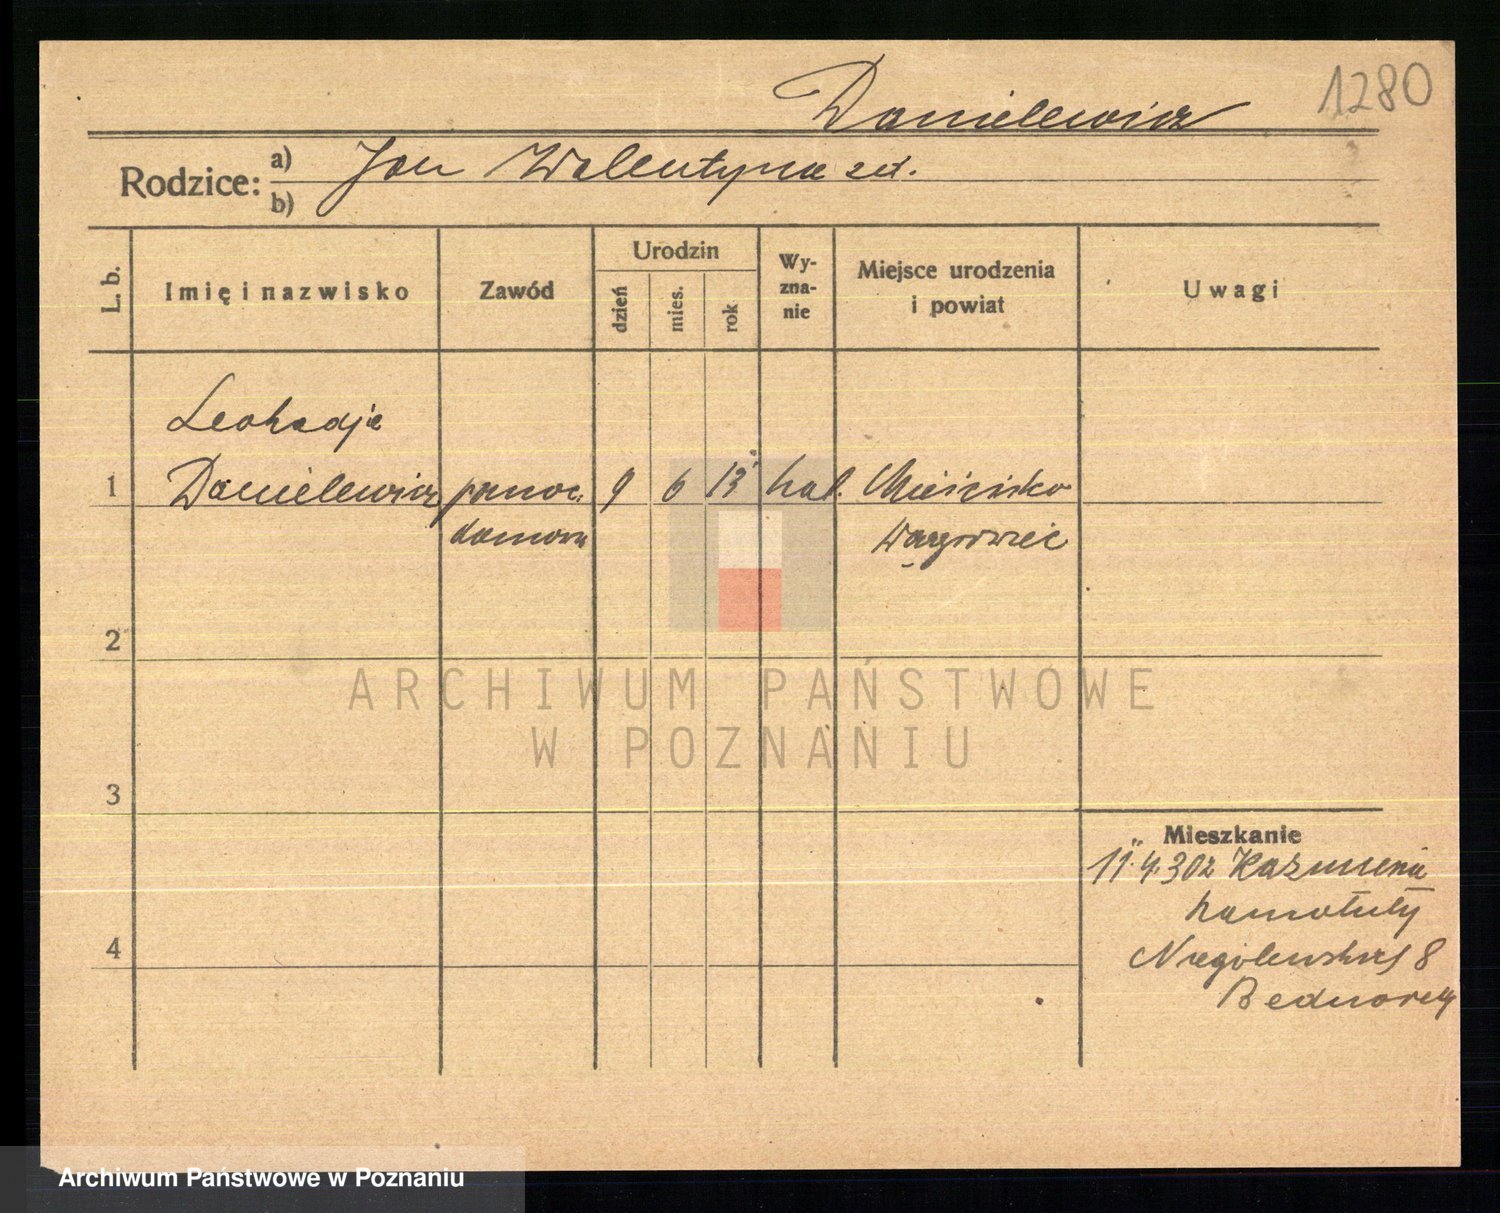 1280
Danielewicz
Rodzice: a) Jan Walentyna zd.
b)
L. b.
Imię i nazwisko
Zawód
Urodzin
dzień
mies.
rok
Wy-
zna-
nie
Miejsce urodzenia
i powiat
Uwagi
Leokadja
1 Danielewicz pomoc. 9 6 13 kat. Mieścisko
domowa Wągrowiec
2
3
4
Mieszkanie
11.4.302 Kazmierz
Szamotuły
Niegolewskich 8
Bednarek
ARCHIWUM PAŃSTWOWE
W POZNANIU
Archiwum Państwowe w Poznaniu